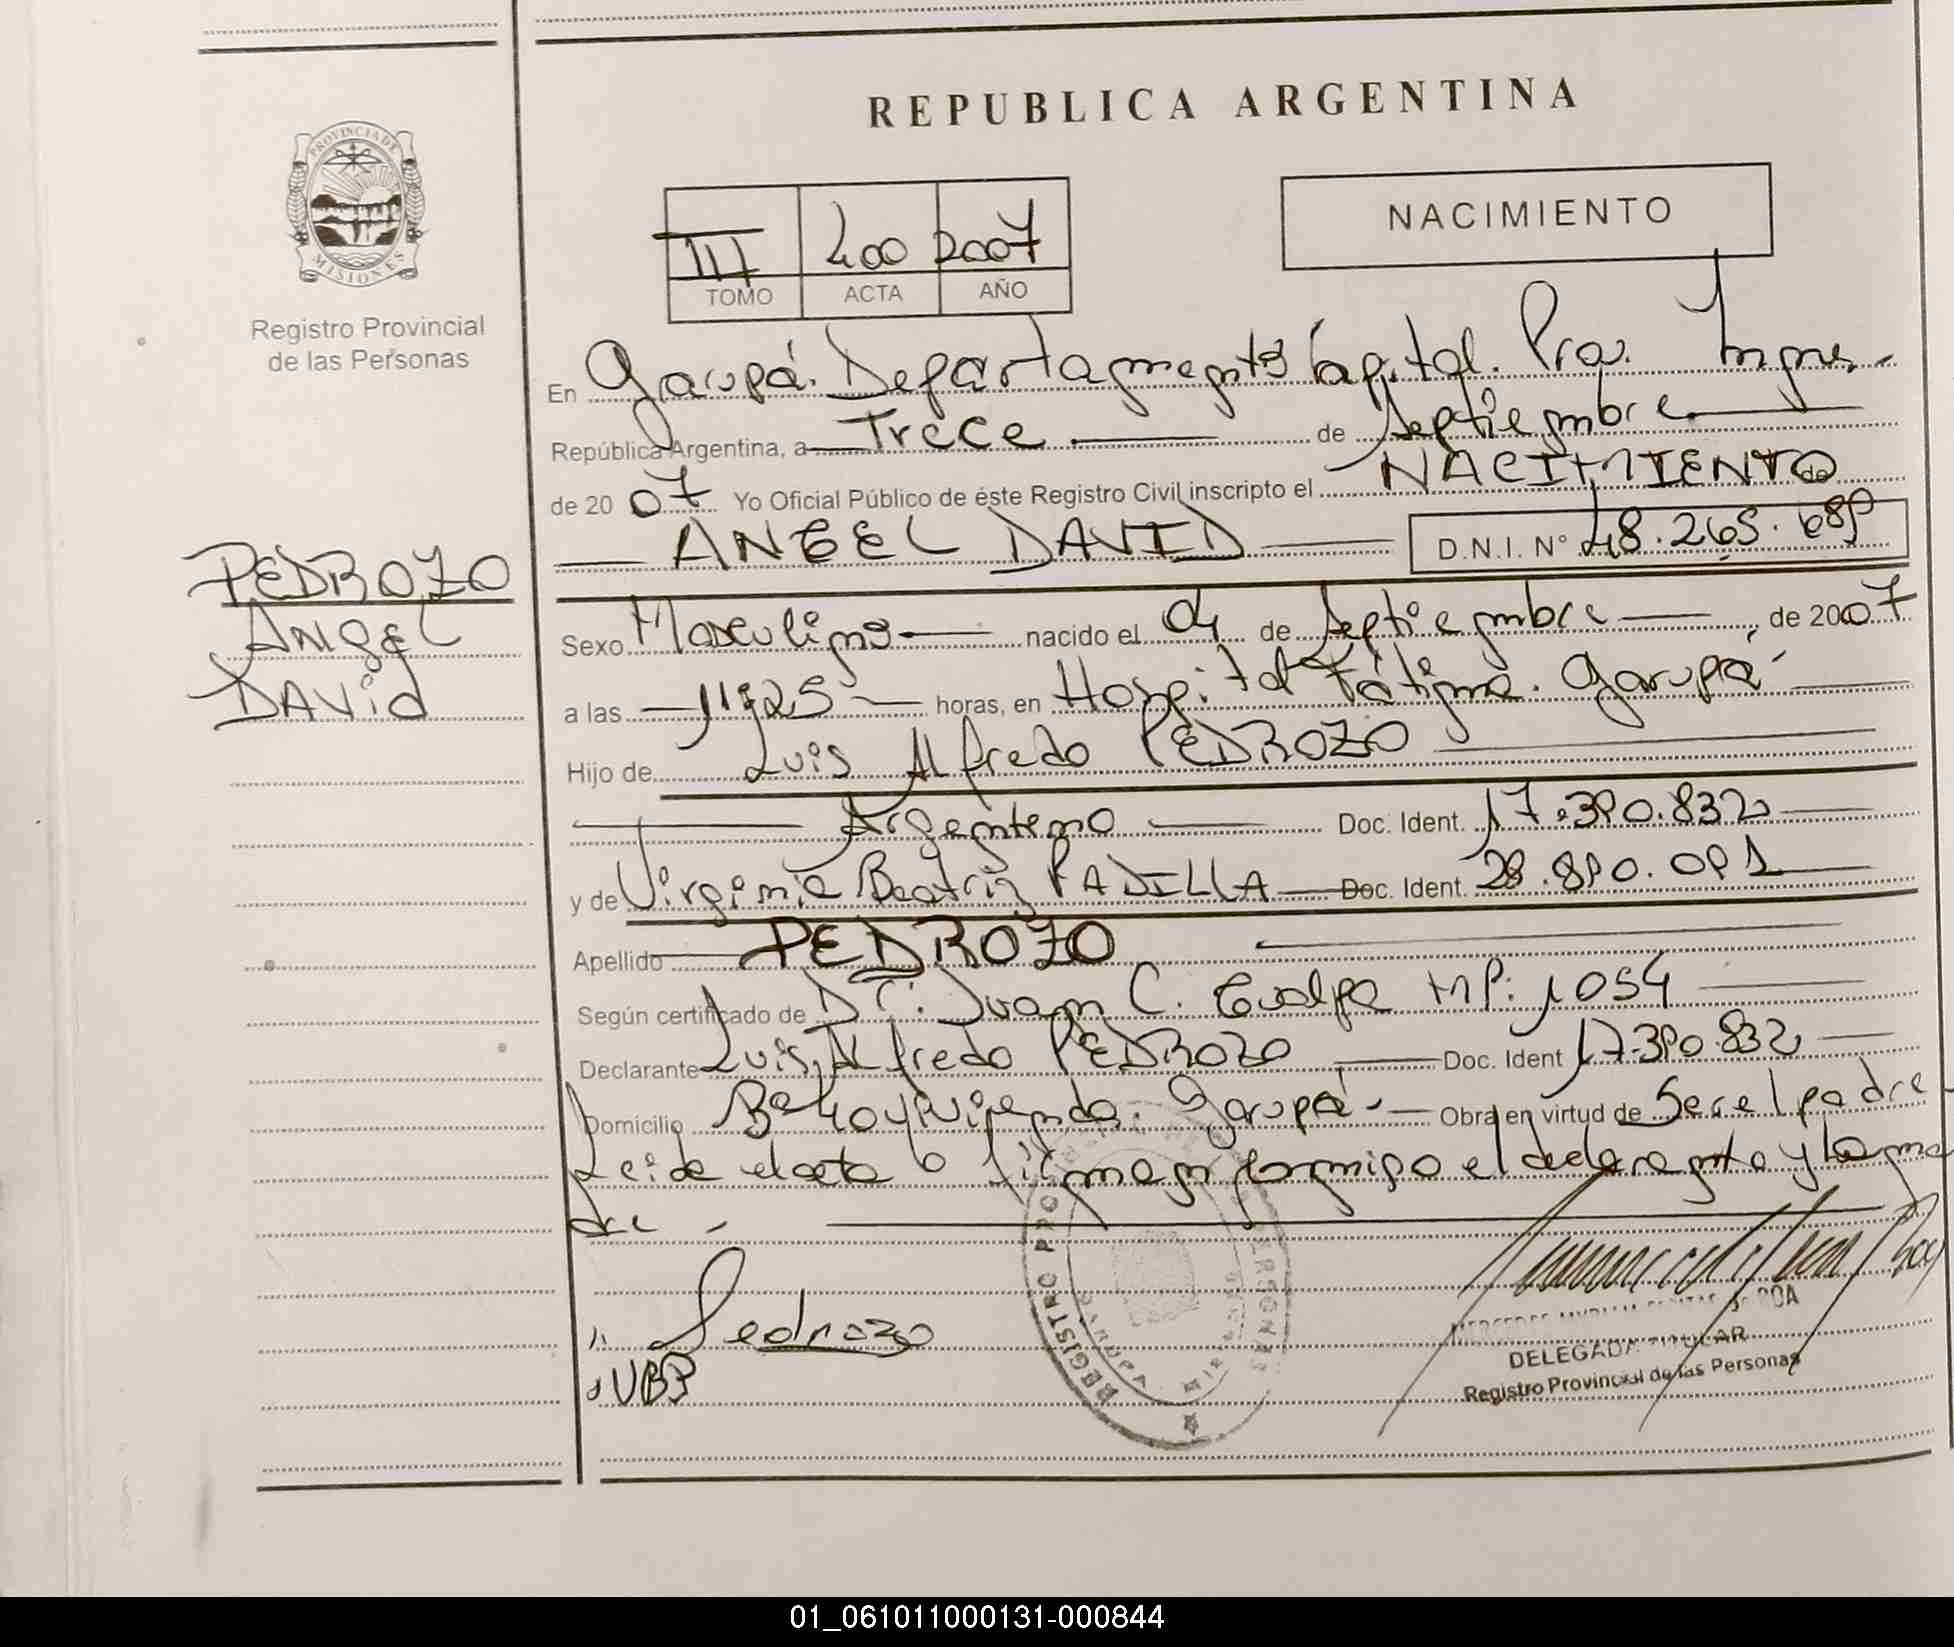 REPUBLICA ARGENTINA
PROVINCIA DE
MISIONES
Registro Provincial
de las Personas
III 400 2007
TOMO ACTA AÑO
NACIMIENTO
En Garupá. Departamento Capital. Prov. Mnes.-
República Argentina, a Trece de Septiembre
de 2007 Yo Oficial Público de éste Registro Civil inscripto el NACIMIENTO de
ANGEL DAVID D.N.I. Nº 48.265.689
PEDROZO
ANGEL
DAVID
Sexo Masculino nacido el 04 de Septiembre de 2007
a las 11:25 horas, en Hospital Fátima. Garupá
Hijo de Luis Alfredo PEDROZO
Argentino Doc. Ident. 17.390.832
y de Virginia Beatriz PADILLA Doc. Ident. 28.890.091
Apellido PEDROZO
Según certificado de Dr. Juan C. MP: 1054
Declarante Luis Alfredo PEDROZO Doc. Ident 17.390.832
Domicilio Bº 40 Viviendas. Garupá.- Obra en virtud de Ser el padre
Leida el acta la firman conmigo el declarante y la ma
dre -
Pedrozo
VBP
REGISTRO PROVINCIAL DE LAS PERSONAS
GARUPA
MISIONES
DELEGADA TITULAR
Registro Provincial de las Personas
01_061011000131-000844